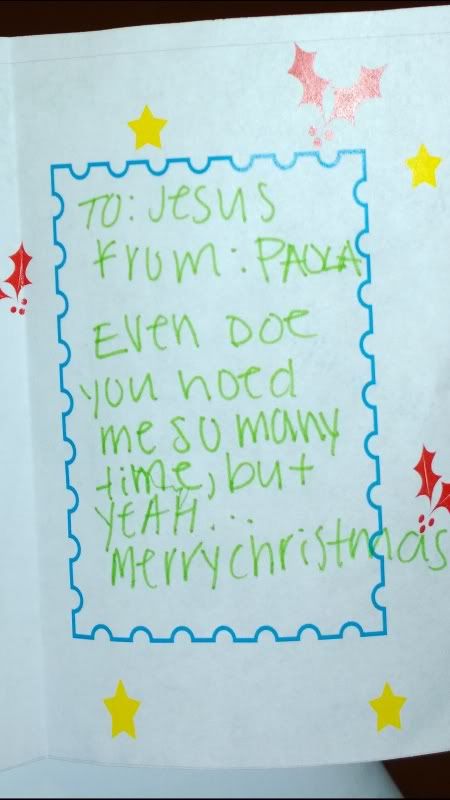 TO: Jesus
Frum: PAOLA
Even Doe
you hoed
me so many
time, but
yeAH...
merry christmas